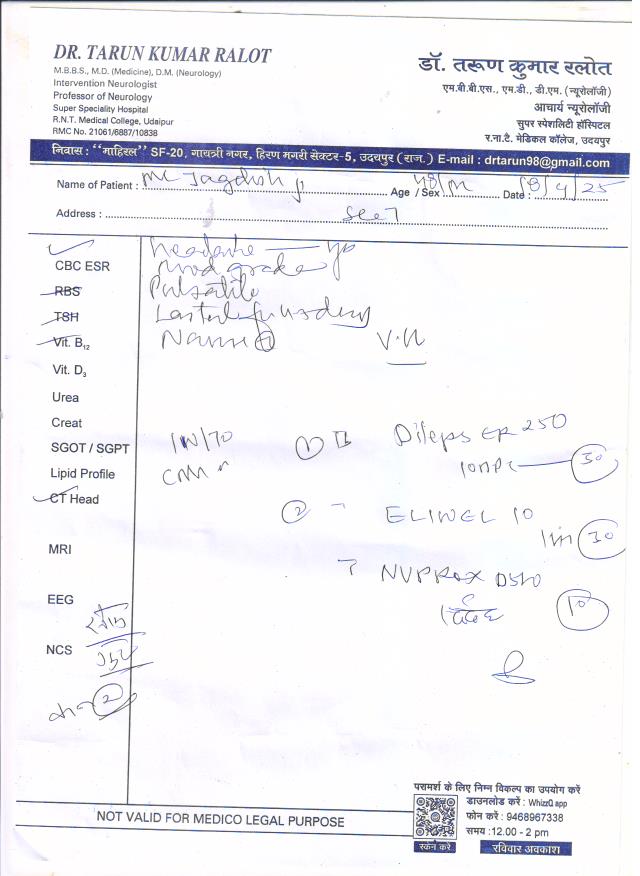 DR. TARUN KUMAR RALOT
M.B.B.S., M.D. (Medicine), D.M. (Neurology)
Intervention Neurologist
Professor of Neurology
Super Speciality Hospital
R.N.T. Medical College, Udaipur
RMC No. 21061/6887/10838
डॉ. तरूण कुमार रलोत
एम.बी.बी.एस., एम.डी., डी.एम. (न्यूरोलॉजी)
आचार्य न्यूरोलॉजी
सुपर स्पेशलिटी हॉस्पिटल
र.ना.टै. मेडिकल कॉलेज, उदयपुर
निवास : "माहिरल" SF-20, गायत्री नगर, हिरण मगरी सेक्टर-5, उदयपुर (राज.) E-mail : drtarun98@gmail.com
Name of Patient : Mr Jagdish Ji Age / Sex 48/M Date : 18/4/25
Address :
CBC ESR Headache
RBS Pulsatile
TSH
Vit. B12 Nausea V.N
Vit. D3
Urea
Creat
SGOT / SGPT ① Dileps ER 250
Lipid Profile 30
CT Head ② ELIWEL 10
30
MRI
NUPROX D500
EEG 10
NCS
②
NOT VALID FOR MEDICO LEGAL PURPOSE
परामर्श के लिए निम्न विकल्प का उपयोग करें
डाउनलोड करें : WhizzQ app
फोन करें : 9468967338
समय :12.00 - 2 pm
स्कैन करें रविवार अवकाश